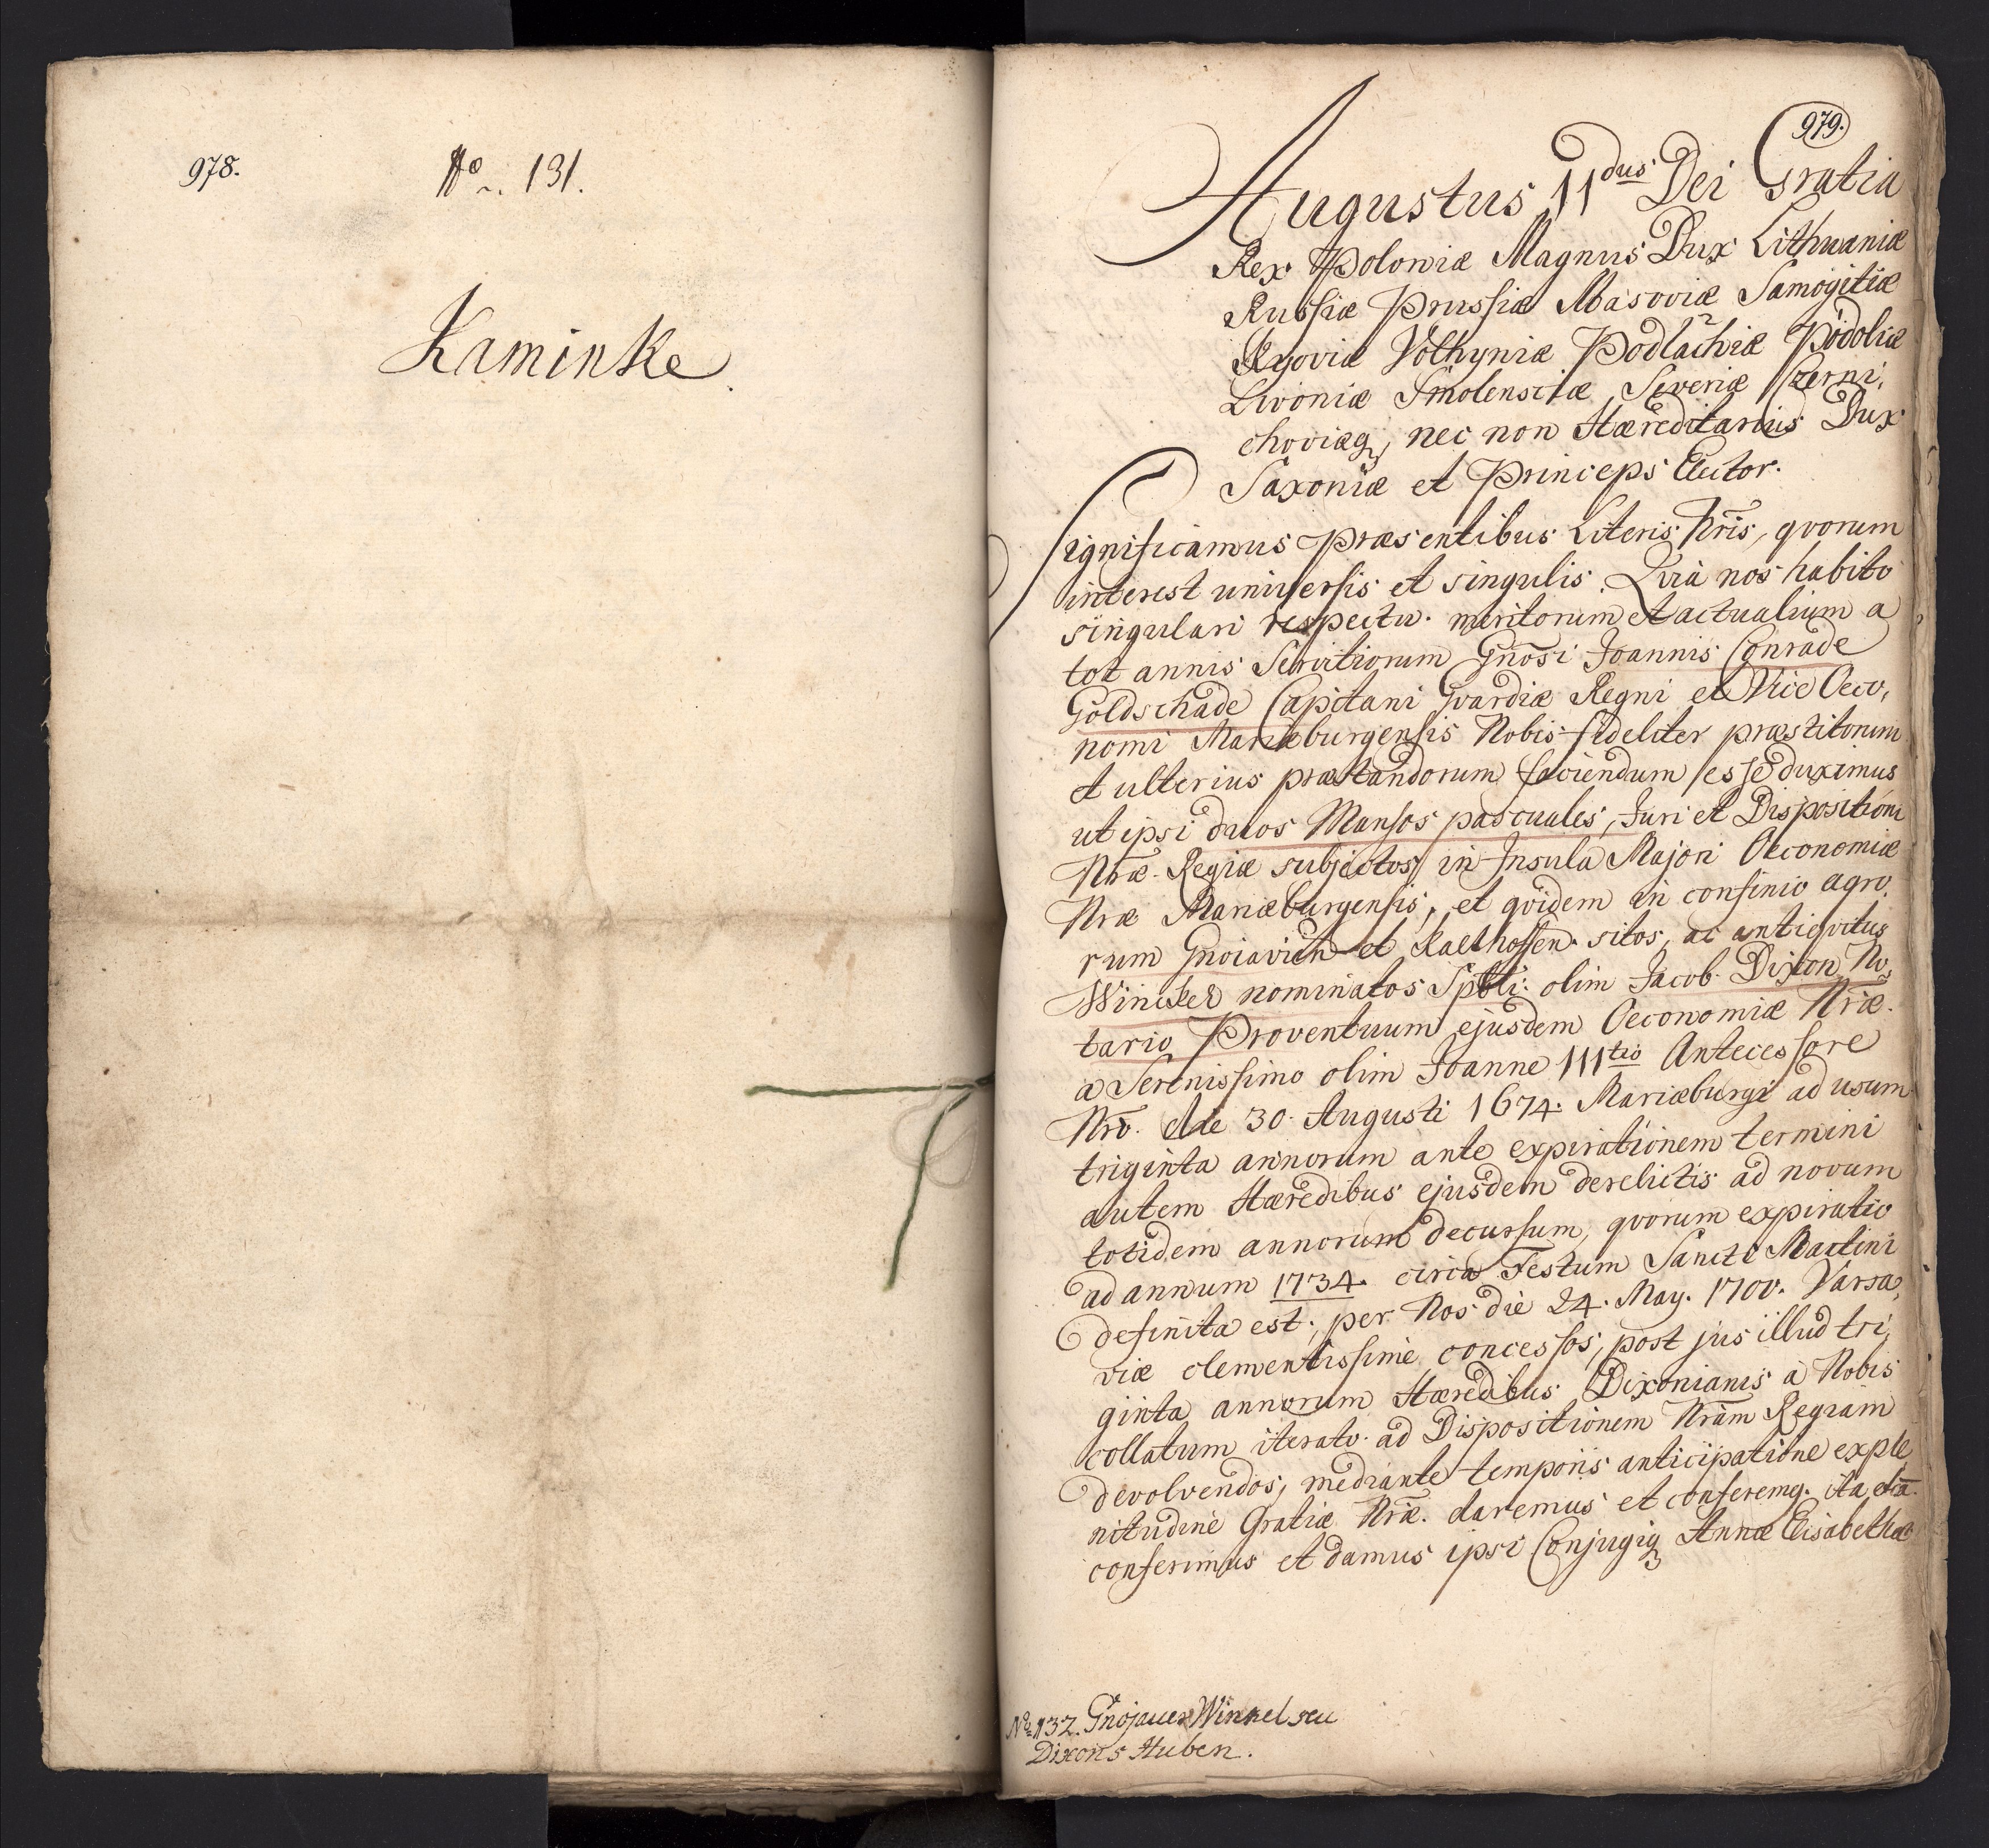 978.
No. 131.
Kaminke
979.
Augustus IIdus Dei Gratia
Rex Poloniæ Magnus Dux Lithuaniæ
Russiæ Prussiæ Masoviæ Samogitiæ
Kyoviæ Volhyniæ Podlachiæ Podoliæ
Livoniæ Smolensciæ Severiæ Czerni,
choviæq, nec non Hæreditarius Dux
Saxoniæ et Princeps Elector.
Significamus præsentibus Literis Nris, qvorum
interest universis et singulis. Qvia nos habito
singulari respectu meritorum et actualium a
tot annis Servitiorum Gnosi Joannis Conrade
Goldschade Capitani Gvardiæ Regni et Vice Oeco,
nomi Mariæburgensis Nobis fideliter præstitorum
et ulterius præstandorum faciendum esse duximus
ut ipsi duos Mansos pascuales, Juri et Dispositioni
Nræ Regiæ subjectos in Insula Majori Oeconomiæ
Nræ Mariæburgensis, et qvidem in confinio agro,
rum Gnoiavien et Kalthoffen. sitos, ac antiqvitus
Winckel nominatos Spbli: olim Jacob Dixon No,
tario Proventuum ejusdem Oeconomiæ Nræ.
a Serenissimo olim Joanne IIItio Antecessore
Nro. die 30. Augusti 1674. Mariæburgi ad usum
triginta annorum ante expirationem termini
autem Hæredibus ejusdem derelictis ad novum
totidem annorum decursum, qvorum expiratio
ad annum 1734. circa Festum Sancti Martini
definita est, per Nos die 24. May. 1700. Varsa,
viæ clementissime concessos, post jus illud tri,
ginta annorum Hæredibus Dixonianis a Nobis
collatum iterato ad Dispositionem Nram Regiam
devolvendos, mediante temporis anticipatione exple,
nitudine Gratiæ Nræ. daremus et conferemq. ita etiā.
conferimus et damus ipsi Conjugiq Annæ Elisabethæ
No. 132. Gnojauer Winkel seu
Dixons Huben.